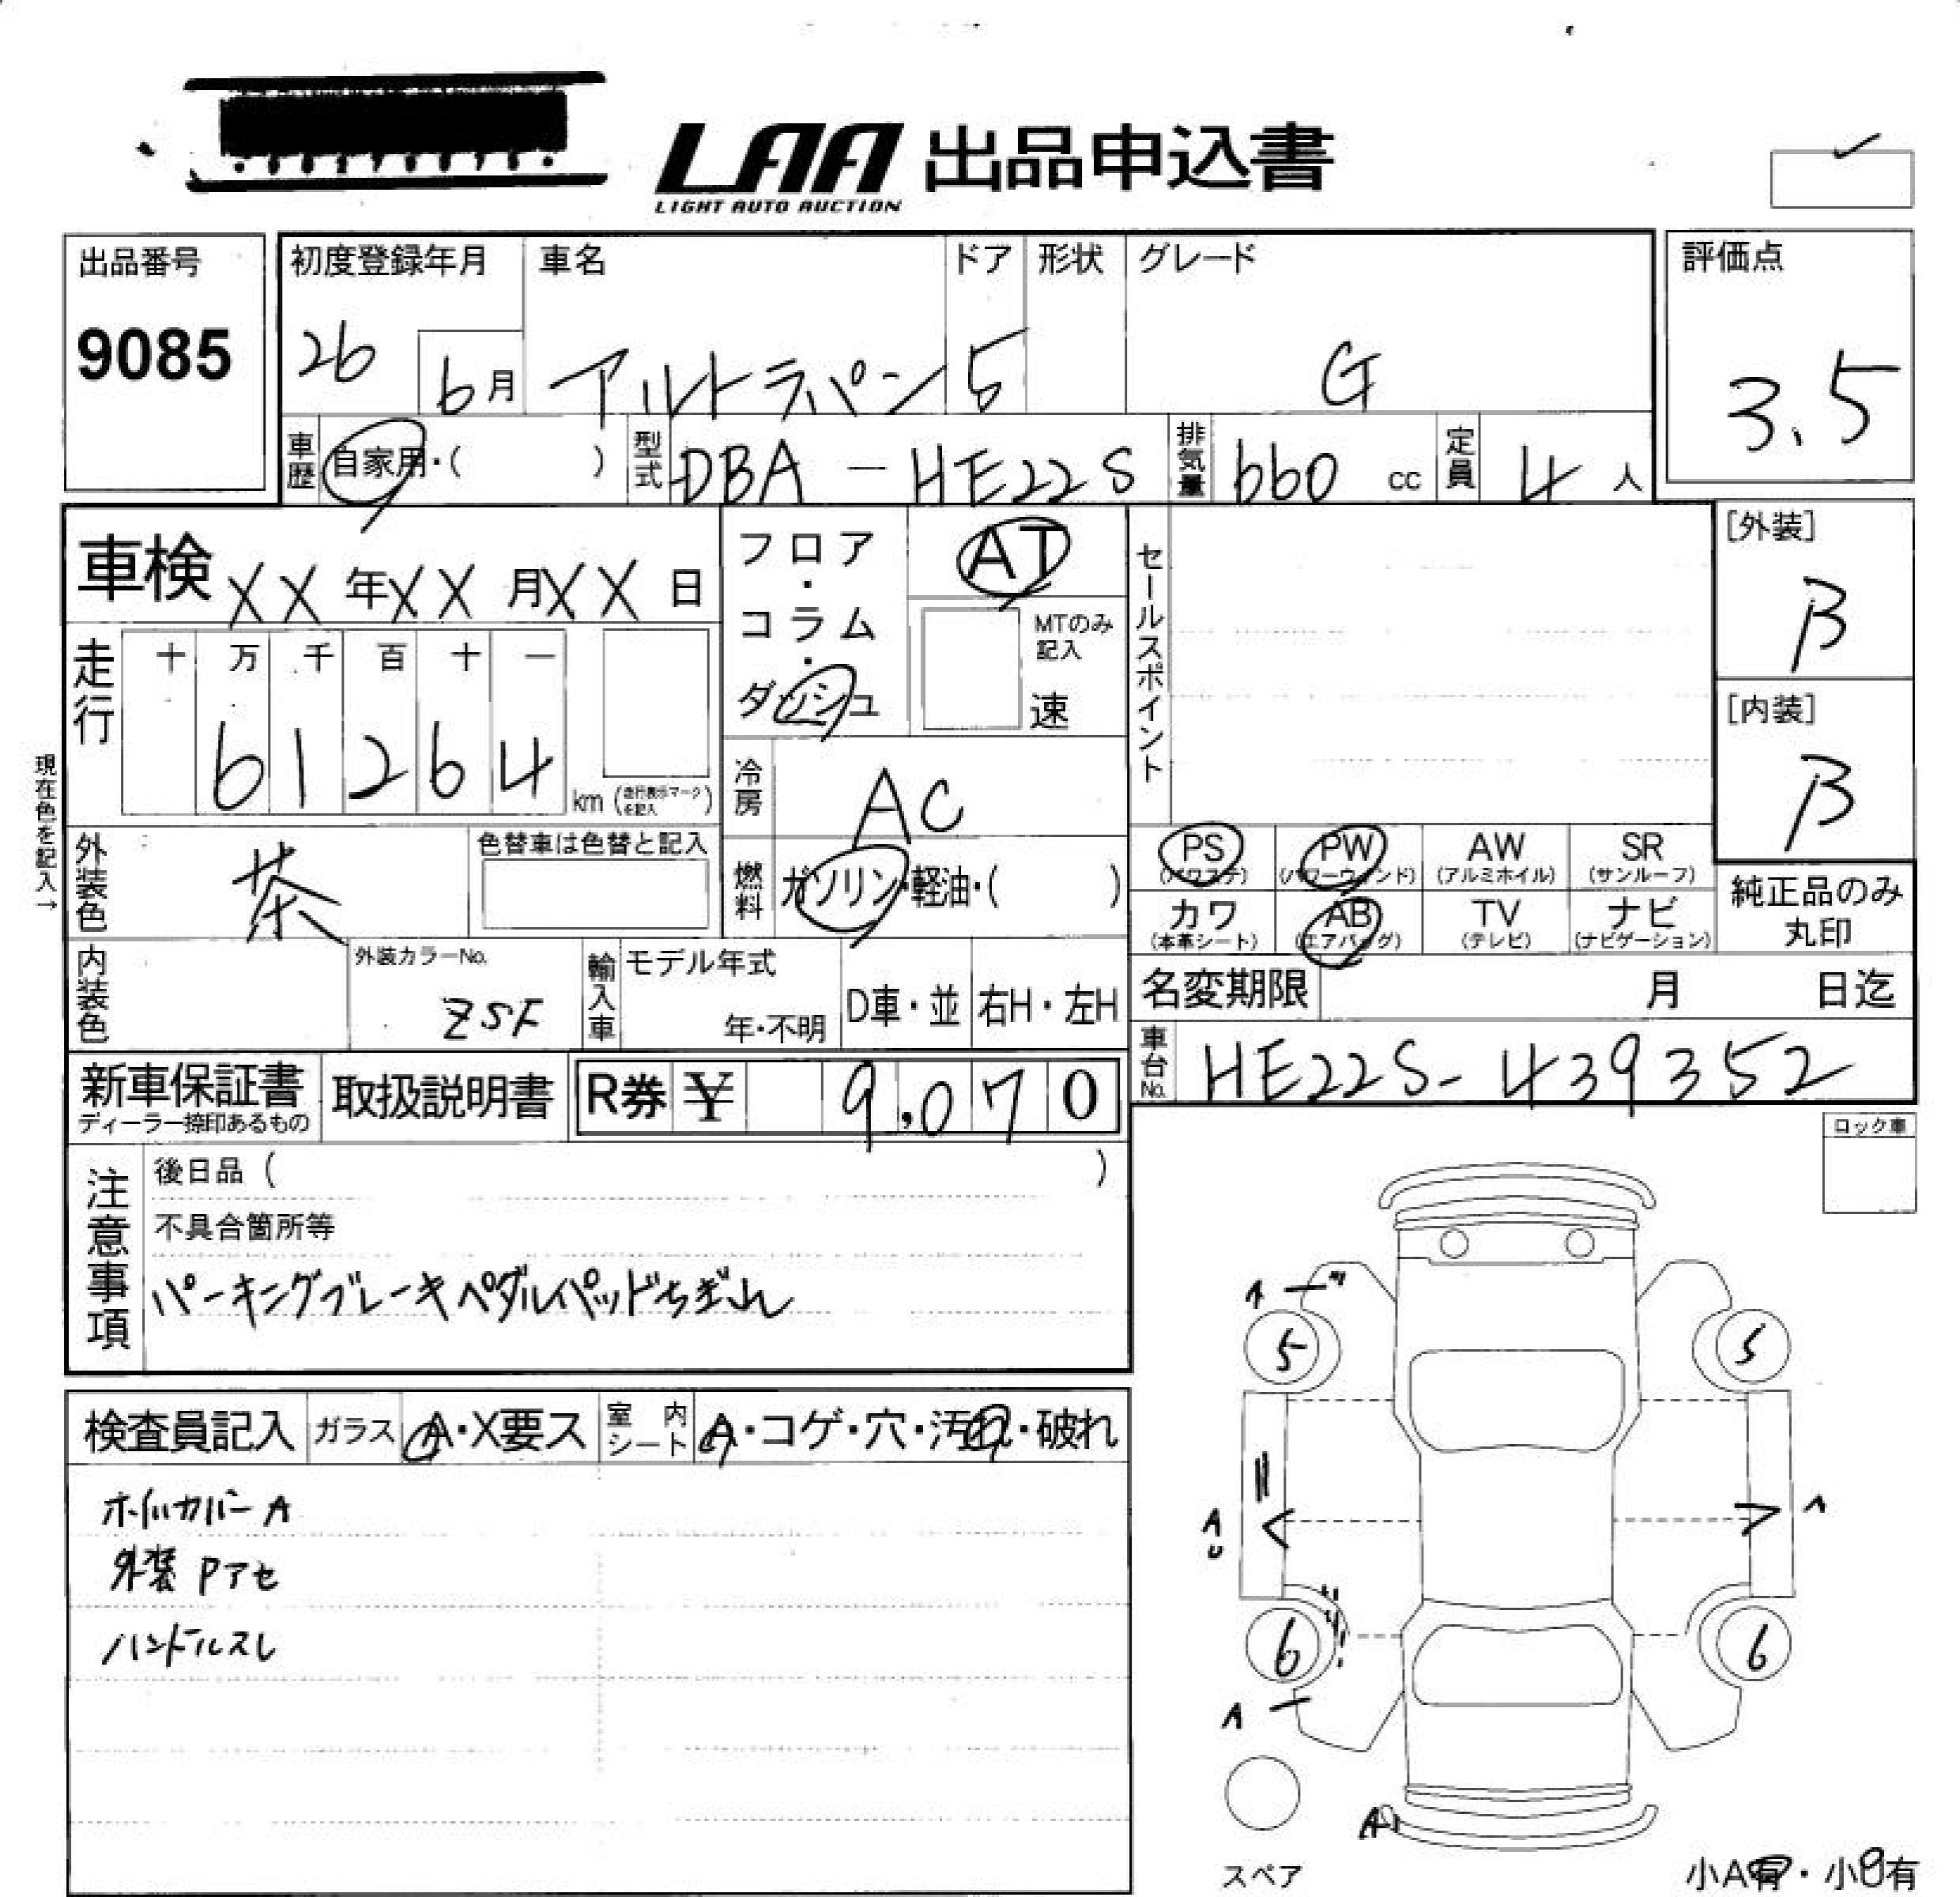 LAA 出品申込書
LIGHT AUTO AUCTION
出品番号
9085
初度登録年月
26
6月
車名
アルトラパン
ドア
5
形状
グレード
G
評価点
3.5
車歴 自家用・( )
型式 DBA-HE22S
排気量 660 cc
定員 4 人
車検 XX年XX月XX日
走行 十 万 千 百 十 一
61264 km (走行表示マークを記入)
現在色を記入→
外装色 茶
色替車は色替と記入
内装色
外装カラーNo.
ZSF
フロア・コラム・ダッシュ
AT
MTのみ記入
速
冷房 AC
燃料 ガソリン・軽油・( )
輸入車 モデル年式
年・不明
D車・並
右H・左H
セールスポイント
[外装]
B
[内装]
B
PS (パワステ)
PW (パワーウィンド)
AW (アルミホイル)
SR (サンルーフ)
カワ (本革シート)
AB (エアバッグ)
TV (テレビ)
ナビ (ナビゲーション)
純正品のみ丸印
名変期限 月 日迄
車台No. HE22S-439352
新車保証書
ディーラー捺印あるもの
取扱説明書
R券 ¥ 9,070
注意事項
後日品 ( )
不具合箇所等
パーキングブレーキペダルパッドちぎれ
ロック車
検査員記入
ガラス A・X要ス
室内シート A・コゲ・穴・汚れ・破れ
ホイルカバーA
外装 Pアセ
ハンドルスレ
5
5
A
U
6
6
A
A
スペア
小A有・小U有